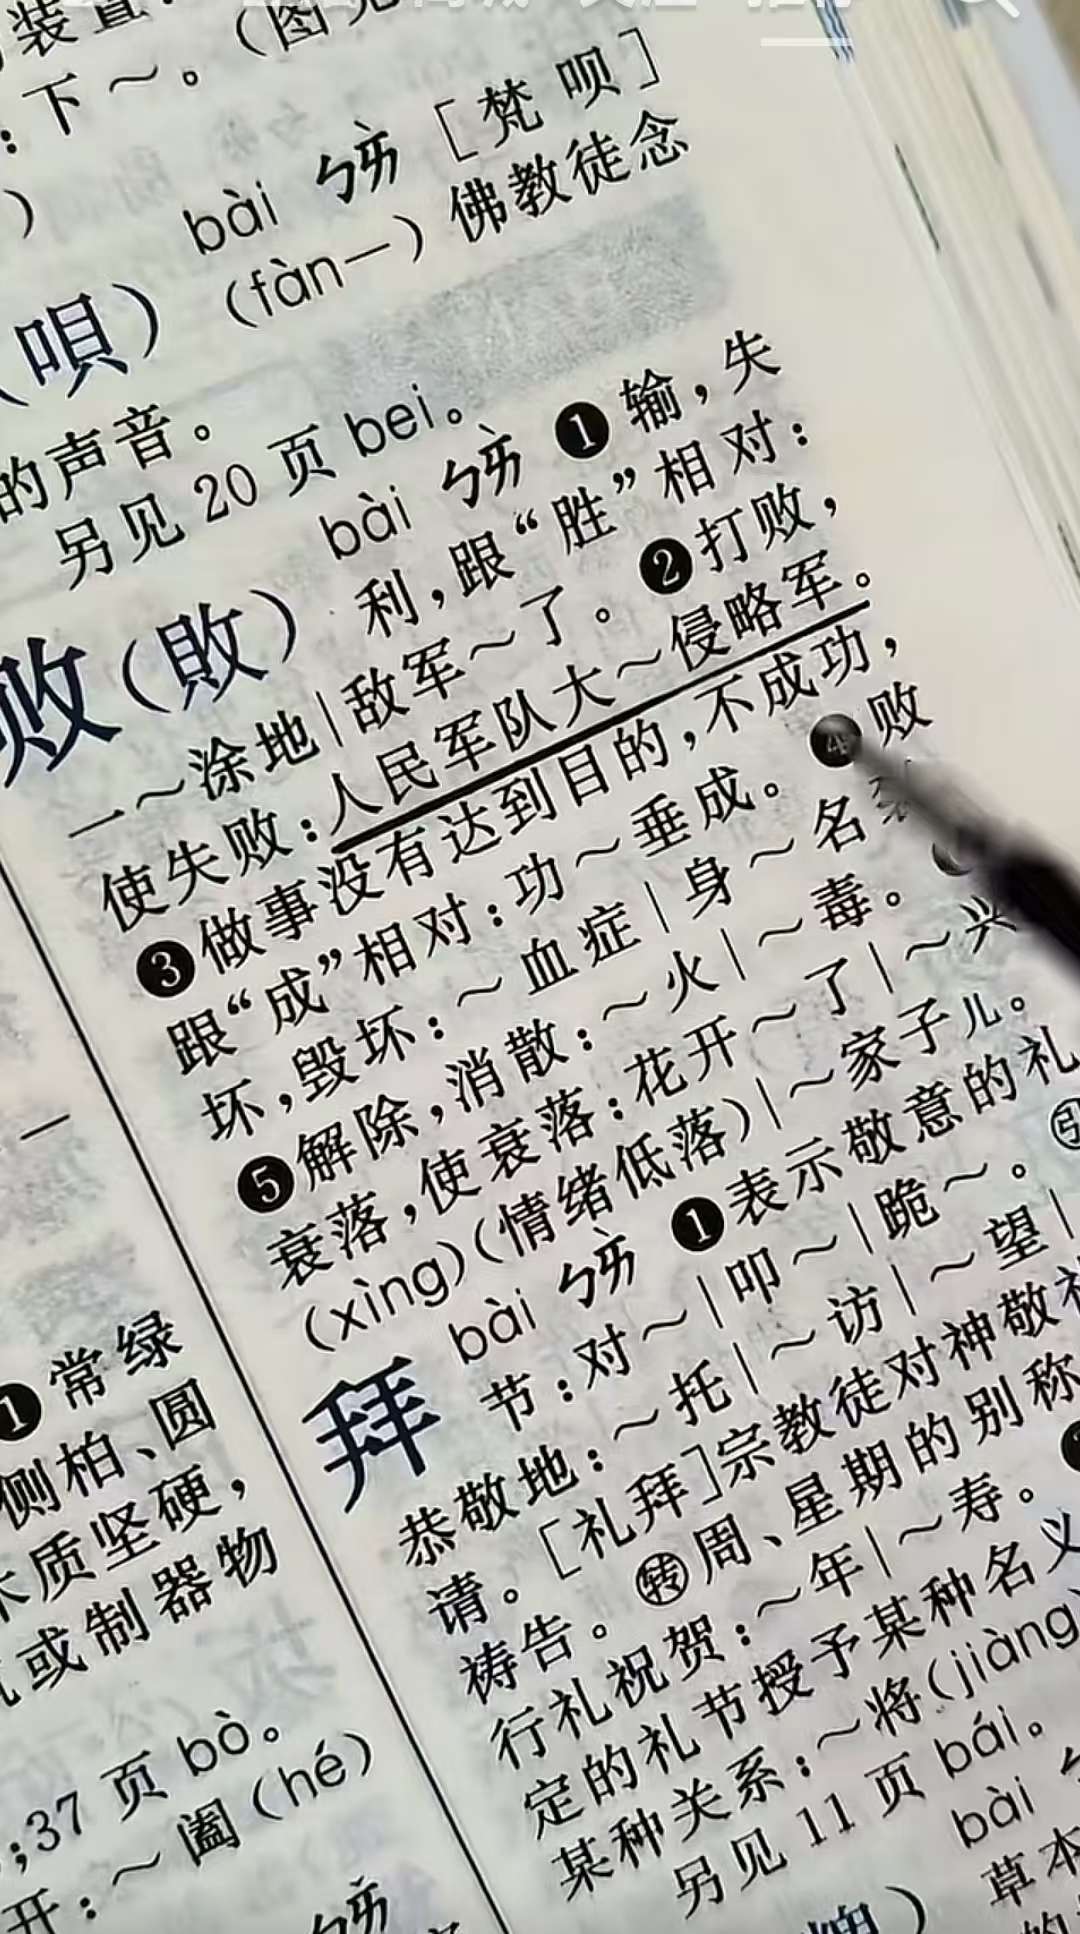 装置
：下～。（图见
bài ㄅㄞˋ ［梵呗］
（唄）（fàn—）佛教徒念
的声音。
另见 20 页 bei。
bài ㄅㄞˋ ❶输，失
败（敗）利，跟“胜”相对：
一～涂地｜敌军～了。❷打败，
使失败：人民军队大～侵略军。
❸做事没有达到目的，不成功，
跟“成”相对：功～垂成。❹败
坏，毁坏：～血症｜身～名裂
❺解除，消散：～火｜～毒。
衰落，使衰落：花开～了｜～兴
（xìng）（情绪低落）｜～家子儿。
bài ㄅㄞˋ ❶表示敬意的礼
拜 节：对～｜叩～｜跪～。㊁引
恭敬地：～托｜～访｜～望｜
请。［礼拜］宗教徒对神敬礼
祷告。㊁转周、星期的别称
行礼祝贺：～年｜～寿。
定的礼节授予某种名义
某种关系：～将（jiàng）
另见 11 页 bái。
bài
草本
❶常绿
侧柏、圆
木质坚硬，
或制器物
；37 页 bò。
开：～阖（hé）
ㄅㄞˋ